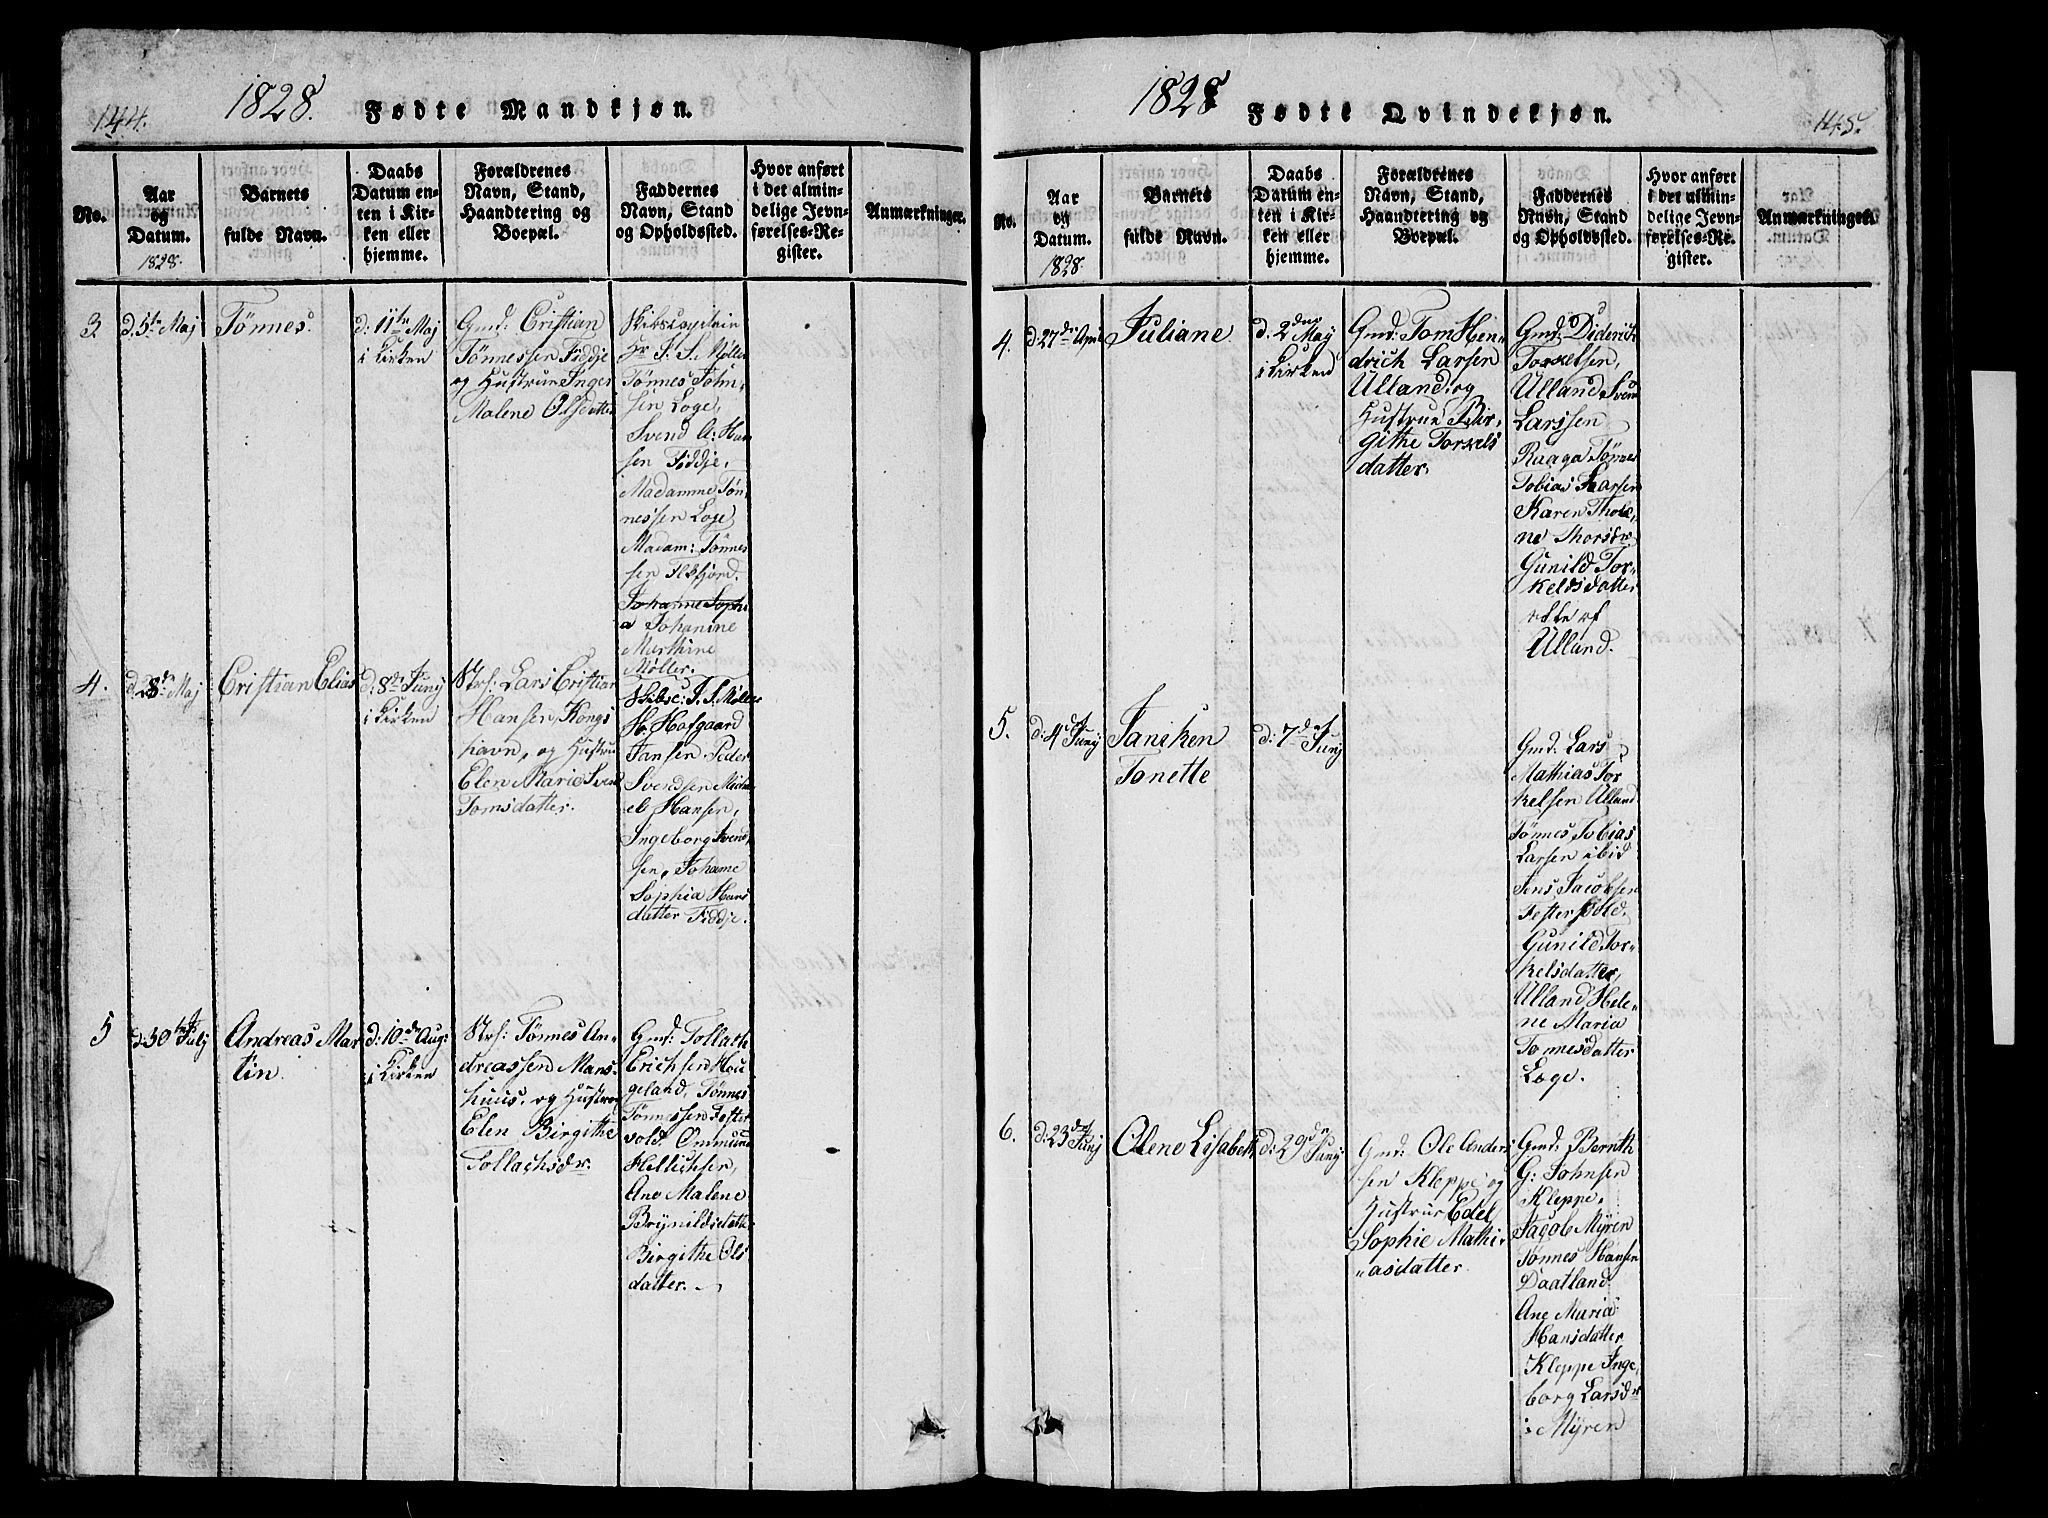 144.
1828. Fødte Mandkjøn.
No.
Aar
og
Datum.
1828.
Barnets
fulde Navn.
Daabs
Datum en-
ten i Kir-
ken eller
hjemme.
Forældrenes
Navn, Stand,
Haandtering og
Boepæl.
Faddernes
Navn, Stand
og Opholdssted.
Hvor anført
i det almin-
delige Jevn-
førelses-Re-
gister.
Anmærkninger.
3.
d. 5te Maj
Tønnes.
d: 11te Maj
i Kirken
Gmd: Cristian
Tønnessen Fiddje
og Hustrue Inger
Malene Olsdatter
Hr J. S. Møller
Tønnes John,
sen Loge,
Svend A: Han
sen Fiddje,
Madamme Tøn
nessen Loge
Madam: Tønnes
sen Flkfjord.
Johanne Soph:
a Johanine
Marthine
Møller.
4.
d. 28de Maj
Cristian Elias
d: 8de Juny
i Kirken
Str: Lars Cristian
Hansen Kongs
havn, og Hustrue
Elen Marie Svend
Tomsdatter.
Skibsc: J. S. Møller
Hr. Hofgaard
Jansen Peder
Svendsen Mich
el Hansen,
Ingeborg Svend
sen, Johanne
Sophia Hans
datter Fiddje.
5
d. 30te July
Andreas Mar
tin.
d: 10de Aug:
i Kirken
Str: Tønnes An-
dreassen Mans
huus. og Hustrue
Elen Birgithe
Tollachsdr.
Gmd: Tollath
Erichsen Hou
geland, Tønnes
Tønnessen Fester
vold. Ommund
Hellichsen,
Ane Malene
Brynildsdatte
Birgithe Ols
datter.
145.
1828 Fødte Qvindekjøn.
No.
Aar
og
Datum.
1828.
Barnets
fulde Navn.
Daabs
Datum en-
ten i Kir-
ken eller
hjemme.
Forældrenes
Navn, Stand,
Haandtering og
Boepæl.
Faddernes
Navn, Stand
og Opholdssted.
Hvor anført
i det almin-
delige Jevn-
førelses-Re-
gister.
Anmærkninger.
4.
d. 27de Apr
Juliane
d: 2den May
i Kirken
Gmd: Tom Hen-
drich Larsen
Ulland og
Hustrue Bir-
githe Torkels
datter.
Gmd: Diderich
Torkelsen,
Ulland Sven
Larssen
Raaga Tønnes
Tobias Larsen
Karen Thor,
ne Thorsdr
Gunild Tor-
keldsdatter
Ulland.
5.
d: 4de Juny
Janiken
Tonette
d: 7de Juny
Gmd: Lars
Mathias Tor
kelsen Ulland
Tønnes Tobias
Larsen ibid
Jens Jacobsen
Festervold.
Gunild Tor-
kelsdatter
Ulland Hele-
ne Maria
Tonnesdatter
Loge.
6.
d: 23de Juny
Olene Lisabeth
d: 29de Juny
Gmd: Ole Anders
sen Kleppe og
Hustrue Edel
Sophie Mathi-
asdatter
Gmd: Bernth
G: Johnsen
Kleppe,
Jacob Myren
Tønnes Hansen
Daatland
Ane Maria
Hansdatter
Kleppe Inge
borg Larsdr
i Myren